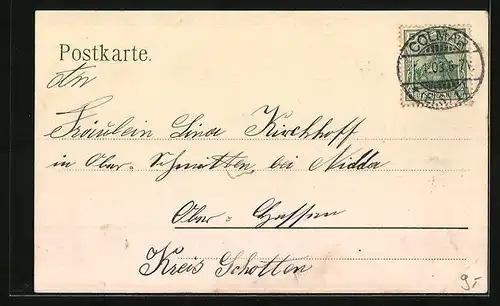 Postkarte.
COLMAR
An
Fräulein Lina Kirchhoff
in Ober-Schmitten bei Nidda
Ober-Hessen
Kreis Schotten
9.-